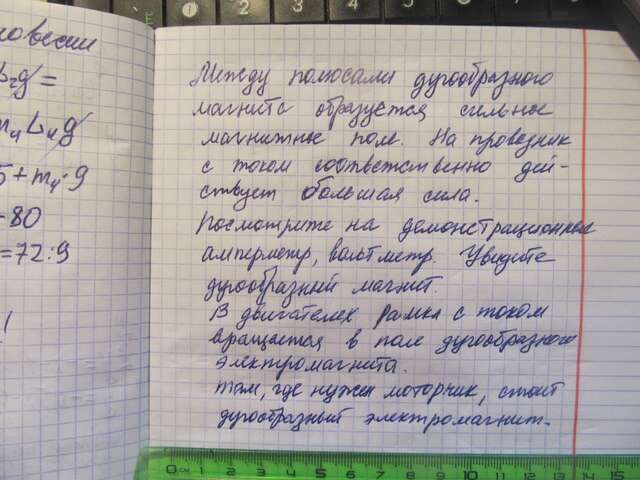 новесии
L₂g =
m₄L₄g
5+m₄·9
80
=72:9
!
Между полюсами дугообразного
магнита образуется сильное
магнитное поле. На проводник
с током соответственно дей-
ствует большая сила.
Посмотрите на демонстрационные
амперметр, вольтметр. Увидите
дугообразный магнит.
В двигателях рамка с током
вращается в поле дугообразного
электромагнита.
Там, где нужен моторчик, стоит
дугообразный электромагнит.
0 см 1 2 3 4 5 6 7 8 9 10 11 12 13 14 15